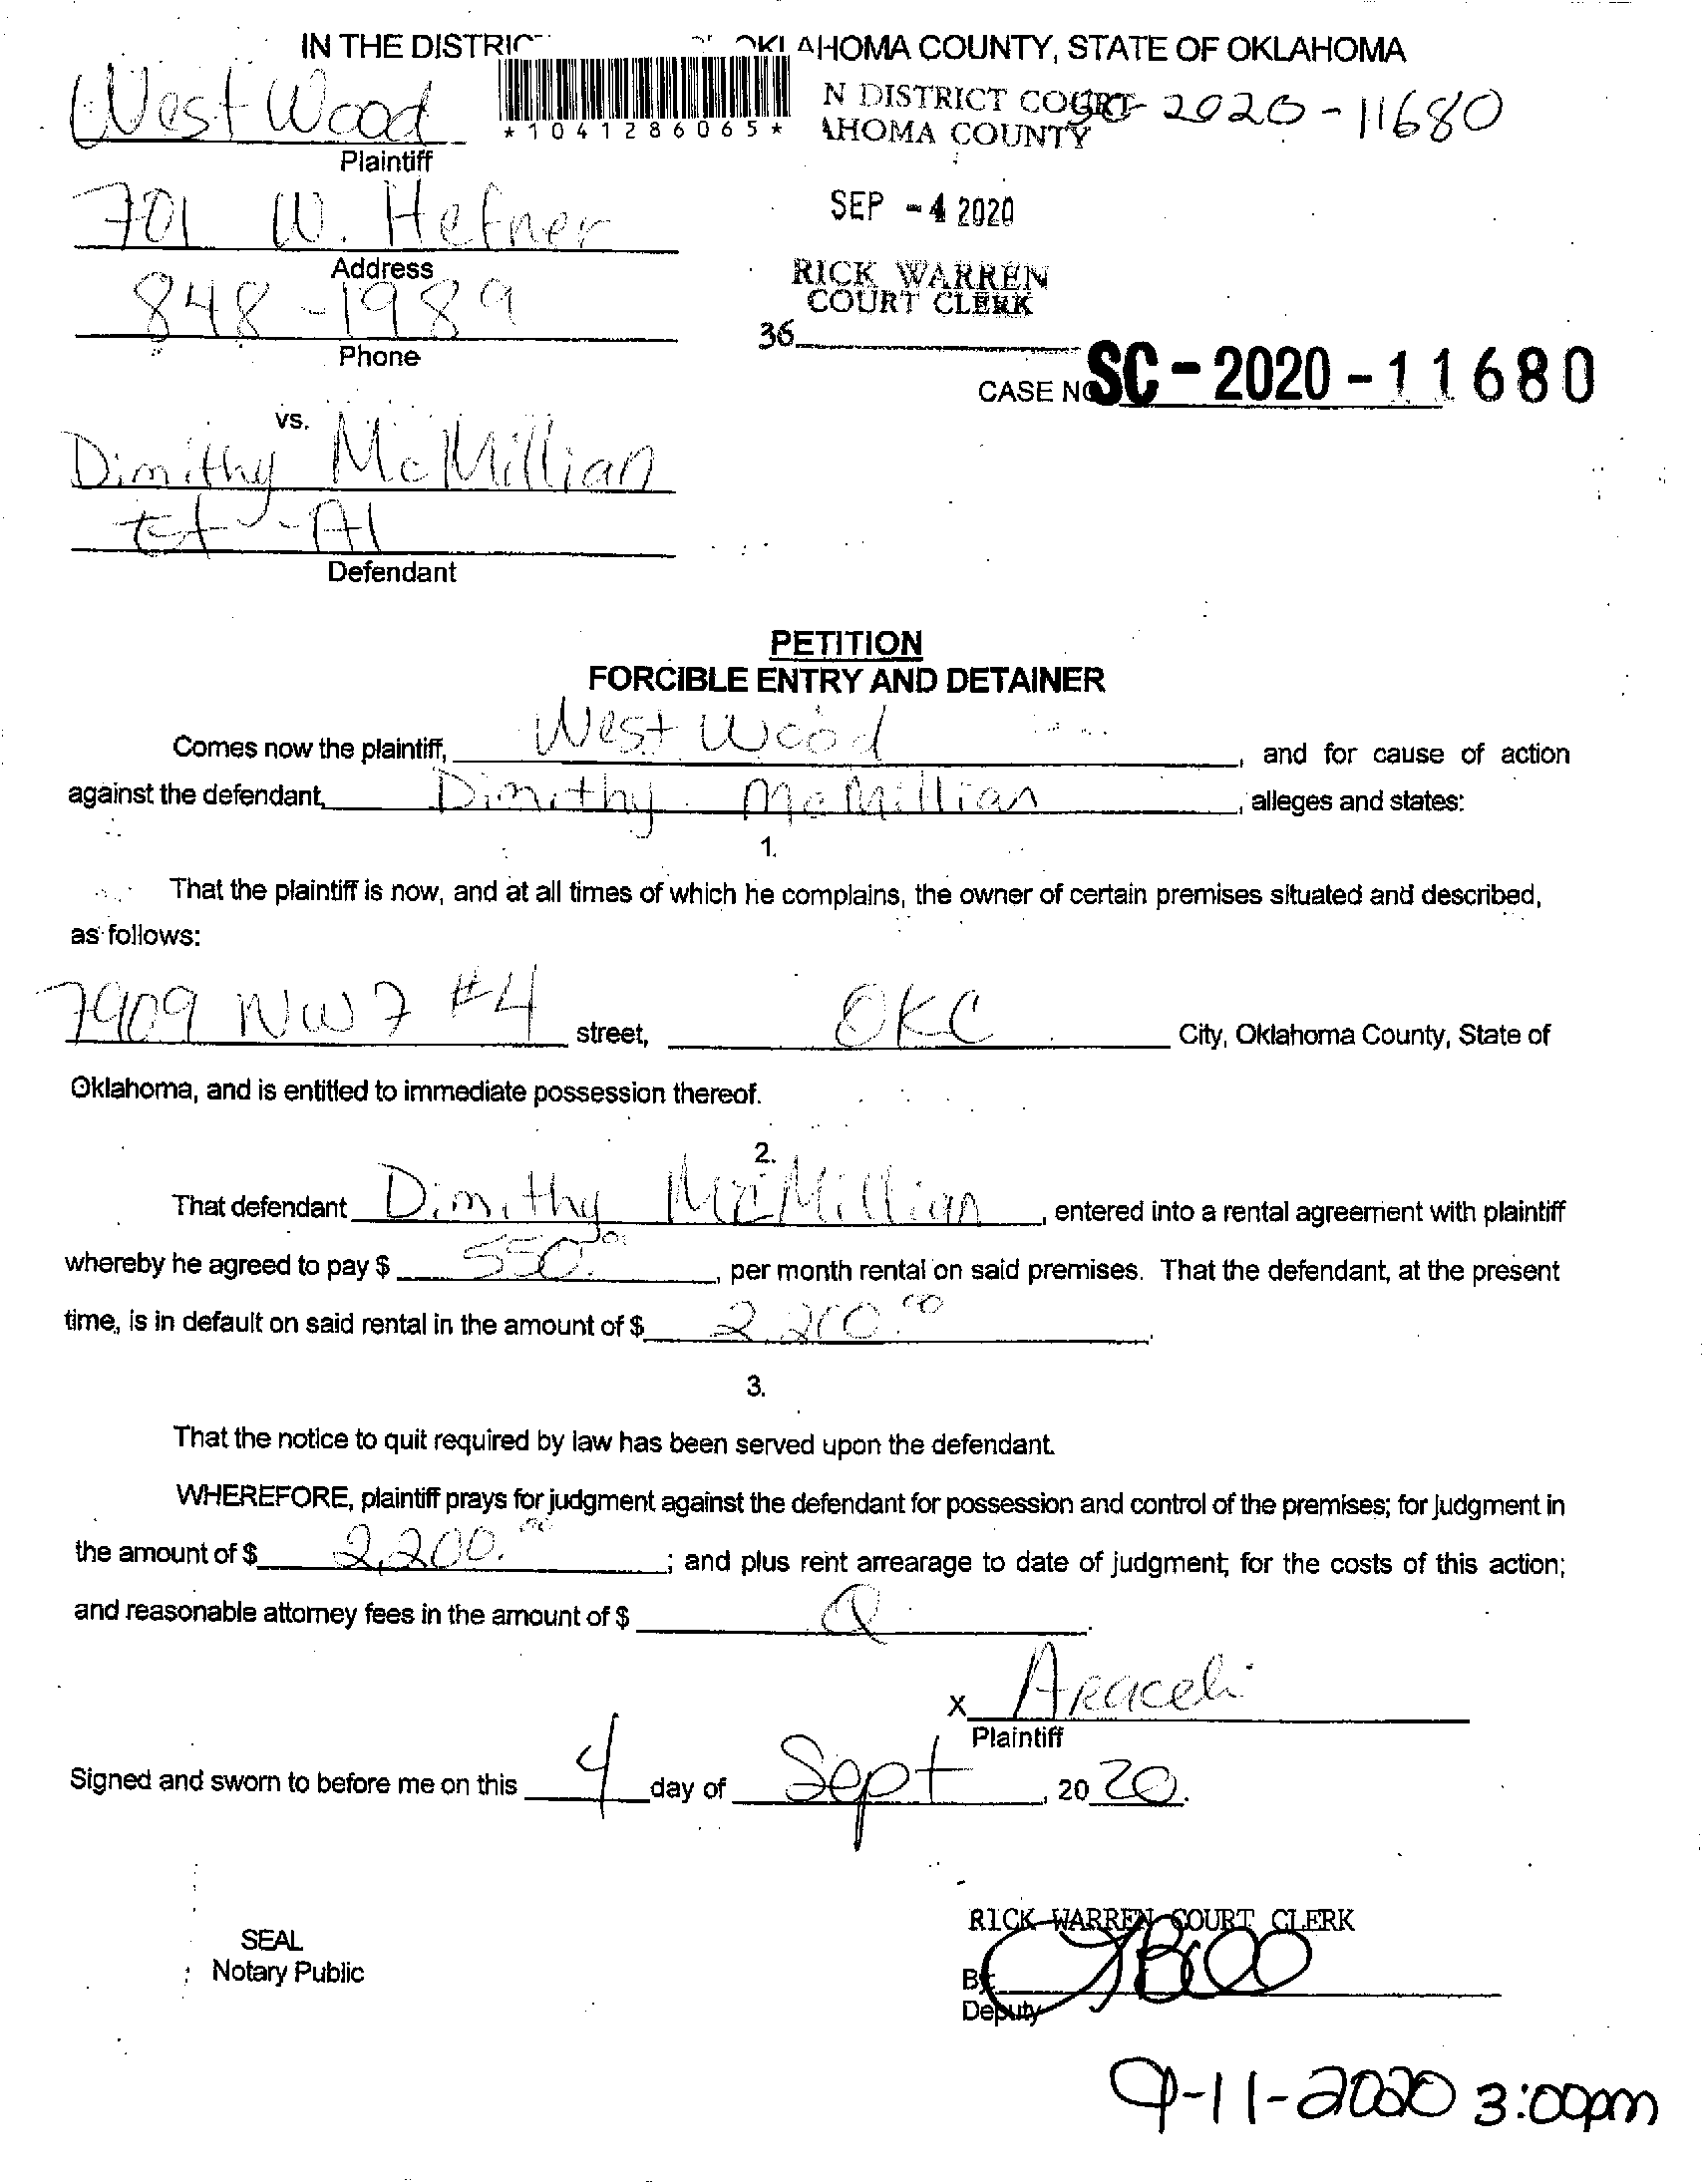 IN THE DISTRIC AHOMA COUNTY, STATE OF OKLAHOMA
*1041286065*
West Wood
N DISTRICT COURT
AHOMA COUNTY
2020-11680
Plaintiff
701 W. Hefner
SEP -4 2020
Address
RICK WARREN
COURT CLERK
848-1989
36
Phone
CASE NO SC-2020-11680
vs.
Dimithy McMillian
et-Al
Defendant
PETITION
FORCIBLE ENTRY AND DETAINER
Comes now the plaintiff, West Wood, and for cause of action
against the defendant, Dimithy McMillian, alleges and states:
1.
That the plaintiff is now, and at all times of which he complains, the owner of certain premises situated and described,
as follows:
7909 NW 7 #4 street, OKC City, Oklahoma County, State of
Oklahoma, and is entitled to immediate possession thereof.
2.
That defendant Dimithy McMillian, entered into a rental agreement with plaintiff
whereby he agreed to pay $ 550.00, per month rental on said premises. That the defendant, at the present
time, is in default on said rental in the amount of $ 2,200.00.
3.
That the notice to quit required by law has been served upon the defendant.
WHEREFORE, plaintiff prays for judgment against the defendant for possession and control of the premises; for judgment in
the amount of $ 2,200.00; and plus rent arrearage to date of judgment; for the costs of this action;
and reasonable attorney fees in the amount of $
X Araceli
Plaintiff
Signed and sworn to before me on this 4 day of Sept, 2020.
RICK WARREN COURT CLERK
SEAL
Notary Public
By
Deputy
9-11-2020 3:00pm